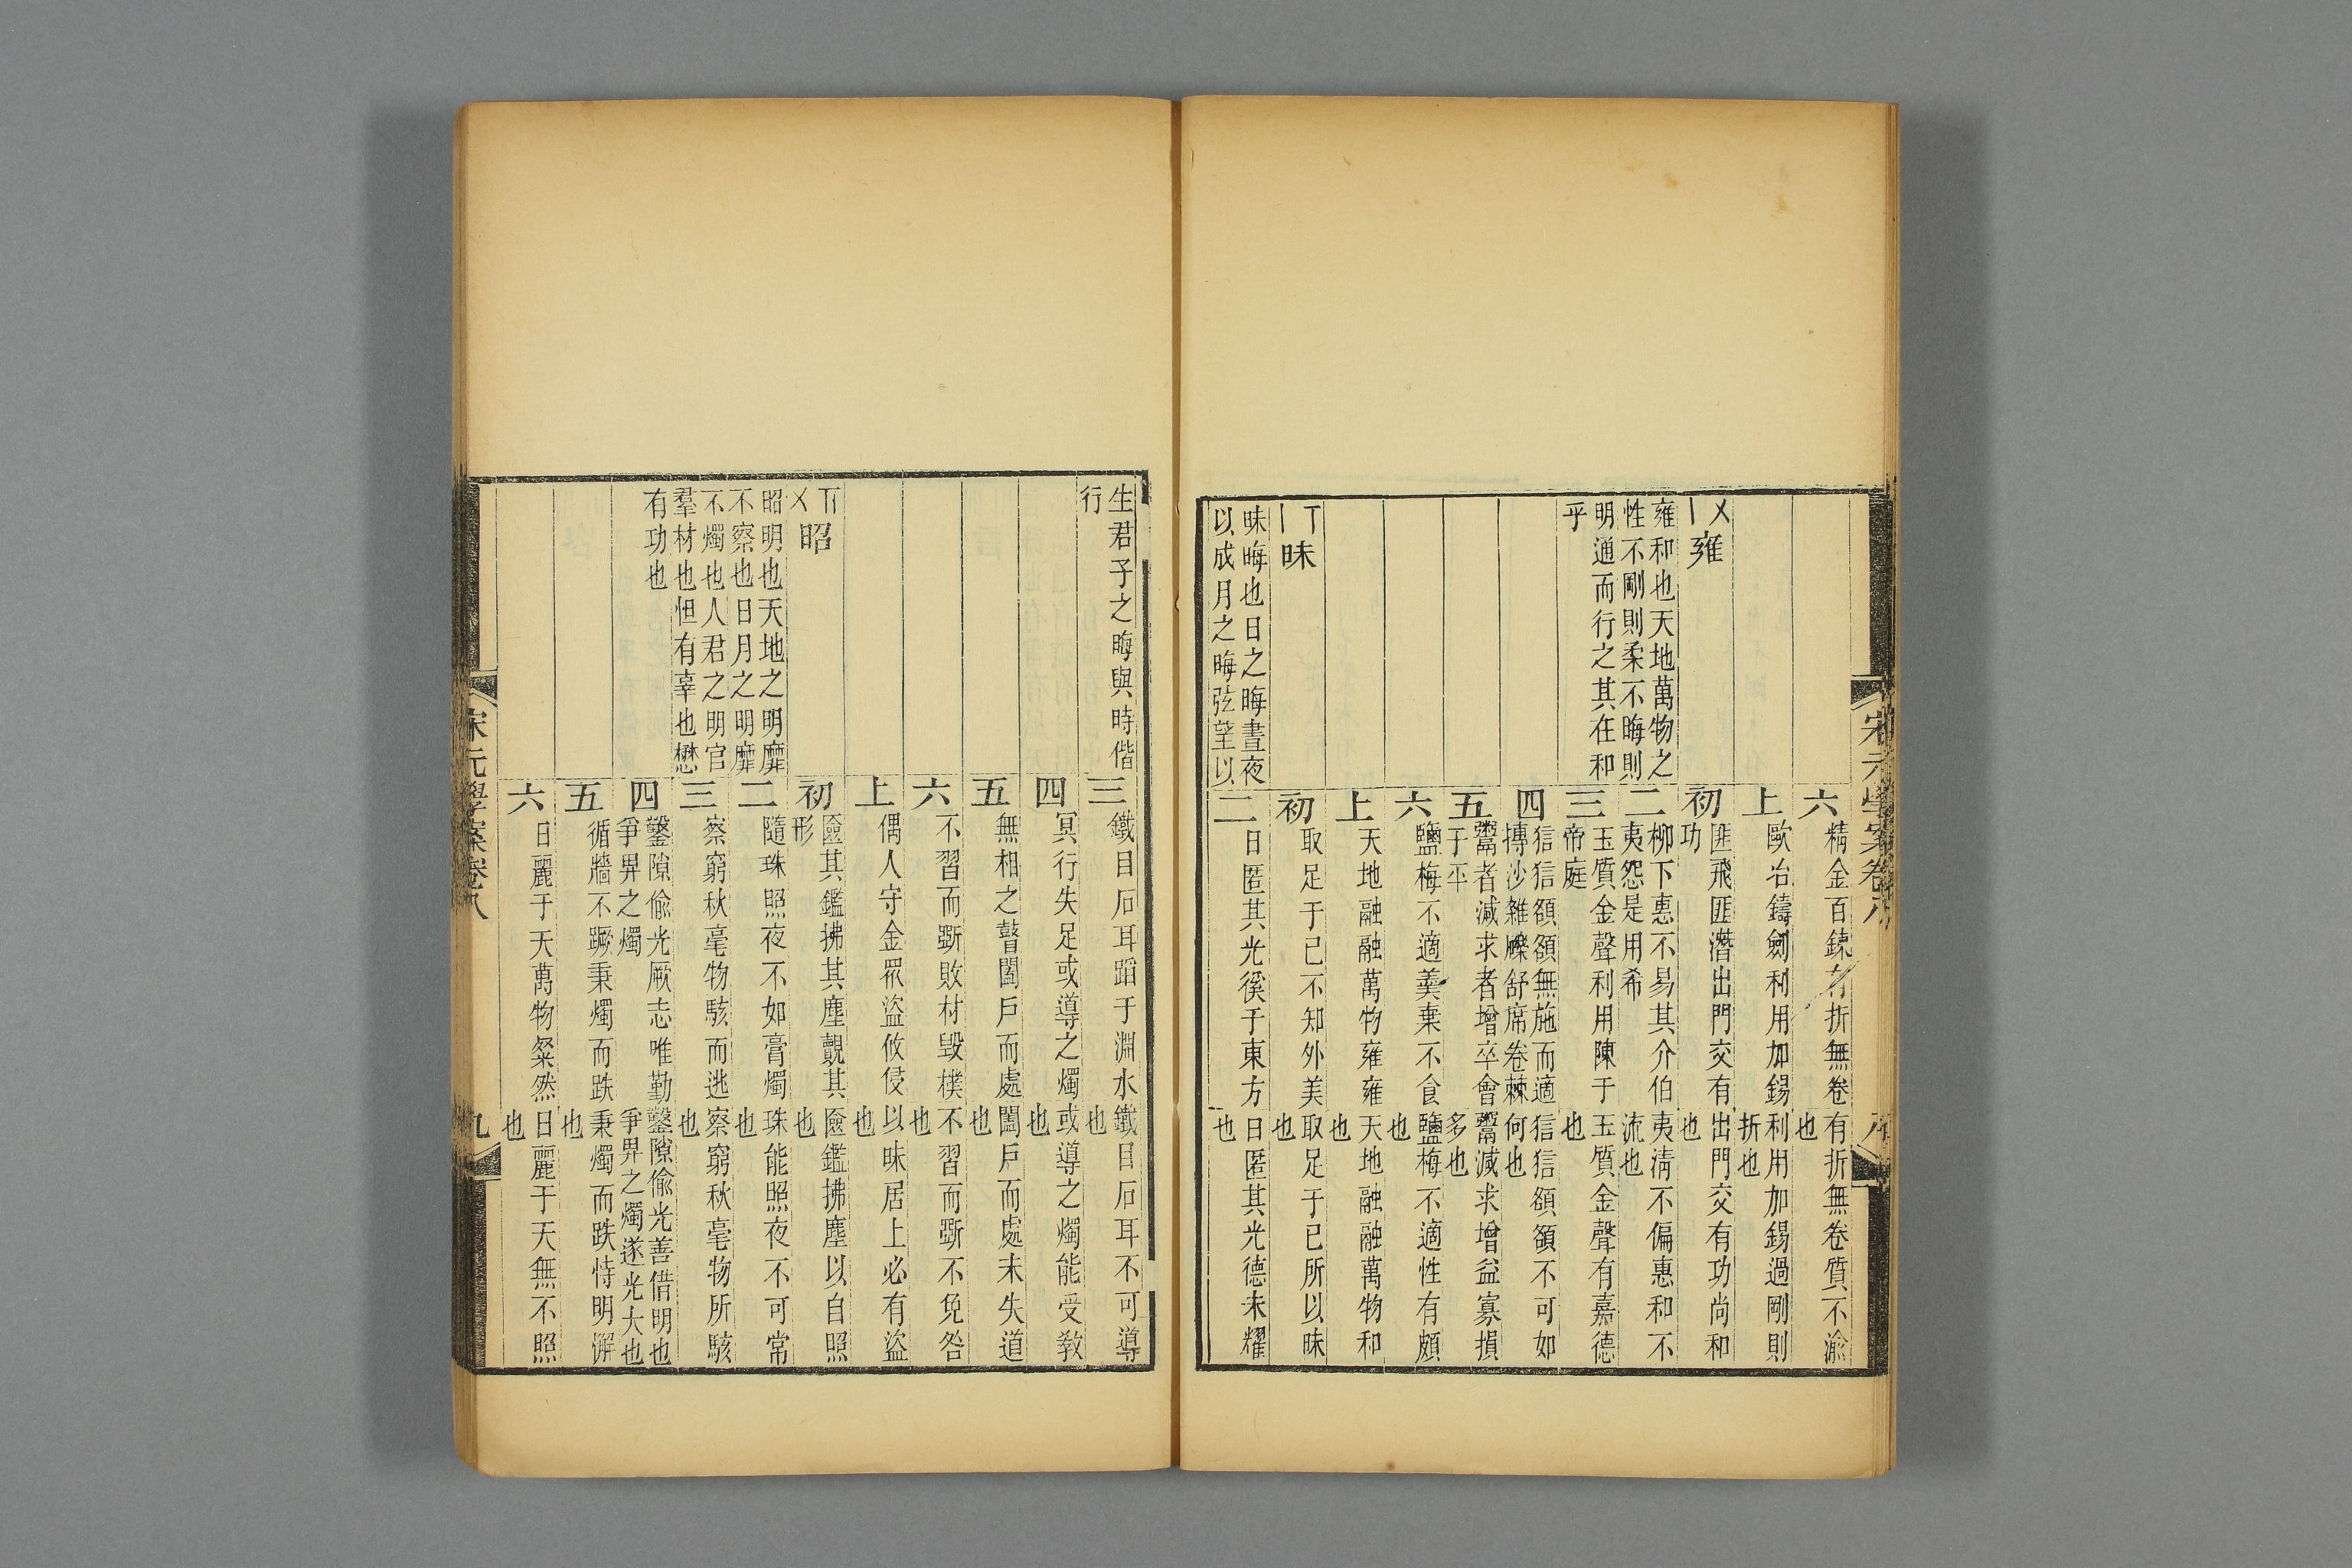 宋元學案卷八
八
六
精金百鍊有折無卷
有折無卷質不渝
也
上
歐冶鑄劍利用加錫
利用加錫過剛則
折也
〤丨
雍
初
匪飛匪潛出門交有
功
出門交有功尚和
也
雍和也天地萬物之
性不剛則柔不晦則
二
柳下惠不易其介伯
夷怨是用希
夷清不偏惠和不
流也
明通而行之其在和
乎
三
玉質金聲利用陳于
帝庭
玉質金聲有嘉德
也
四
信信額額無施而適
摶沙雜礫舒席卷棘
信信額額不可如
何也
五
鬻者減求者增卒會
于平
鬻減求增益寡損
多也
六
鹽梅不適羹棄不食
鹽梅不適性有頗
也
上
天地融融萬物雍雍
天地融融萬物和
也
丅丨
昧
初
取足于已不知外美
取足于已所以昧
也
昧晦也日之晦晝夜
以成月之晦弦望以
二
日匿其光徯于東方
日匿其光德未耀
也
生君子之晦與時偕
行
三
鐵目石耳蹈于淵水
鐵目石耳不可導
也
四
冥行失足或導之燭
或導之燭能受敎
也
五
無相之瞽闔戶而處
闔戶而處未失道
也
六
不習而斲敗材毀樸
不習而斲不免咎
也
上
偶人守金眾盜攸侵
以昧居上必有盜
也
〢〤
昭
初
匳其鑑拂其塵覿其
形
匳鑑拂塵以自照
也
昭明也天地之明靡
不察也日月之明靡
二
隨珠照夜不如膏燭
珠能照夜不可常
也
不燭也人君之明官
羣材也怛有辜也懋
三
察窮秋毫物駭而逃
察窮秋毫物所駭
也
有功也
四
鑿隙偷光厥志唯勤
爭畀之燭
鑿隙偷光善借明也
爭畀之燭遂光大也
五
循牆不蹶秉燭而跌
秉燭而跌恃明懈
也
六
日麗于天萬物粲然
日麗于天無不照
也
宋元學案卷八
九